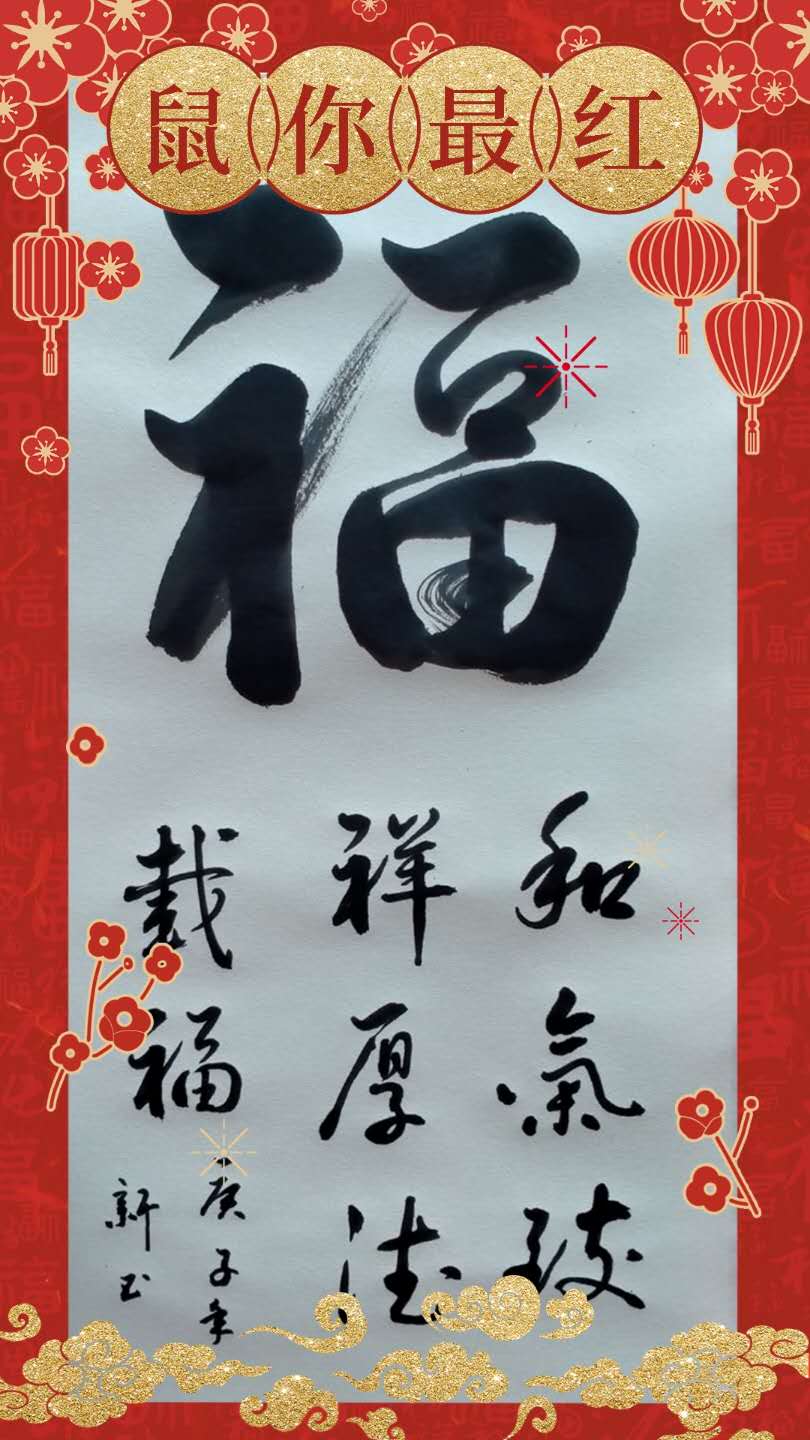 鼠你最红
福
和氣致
祥厚德
載福
庚子年
新玉